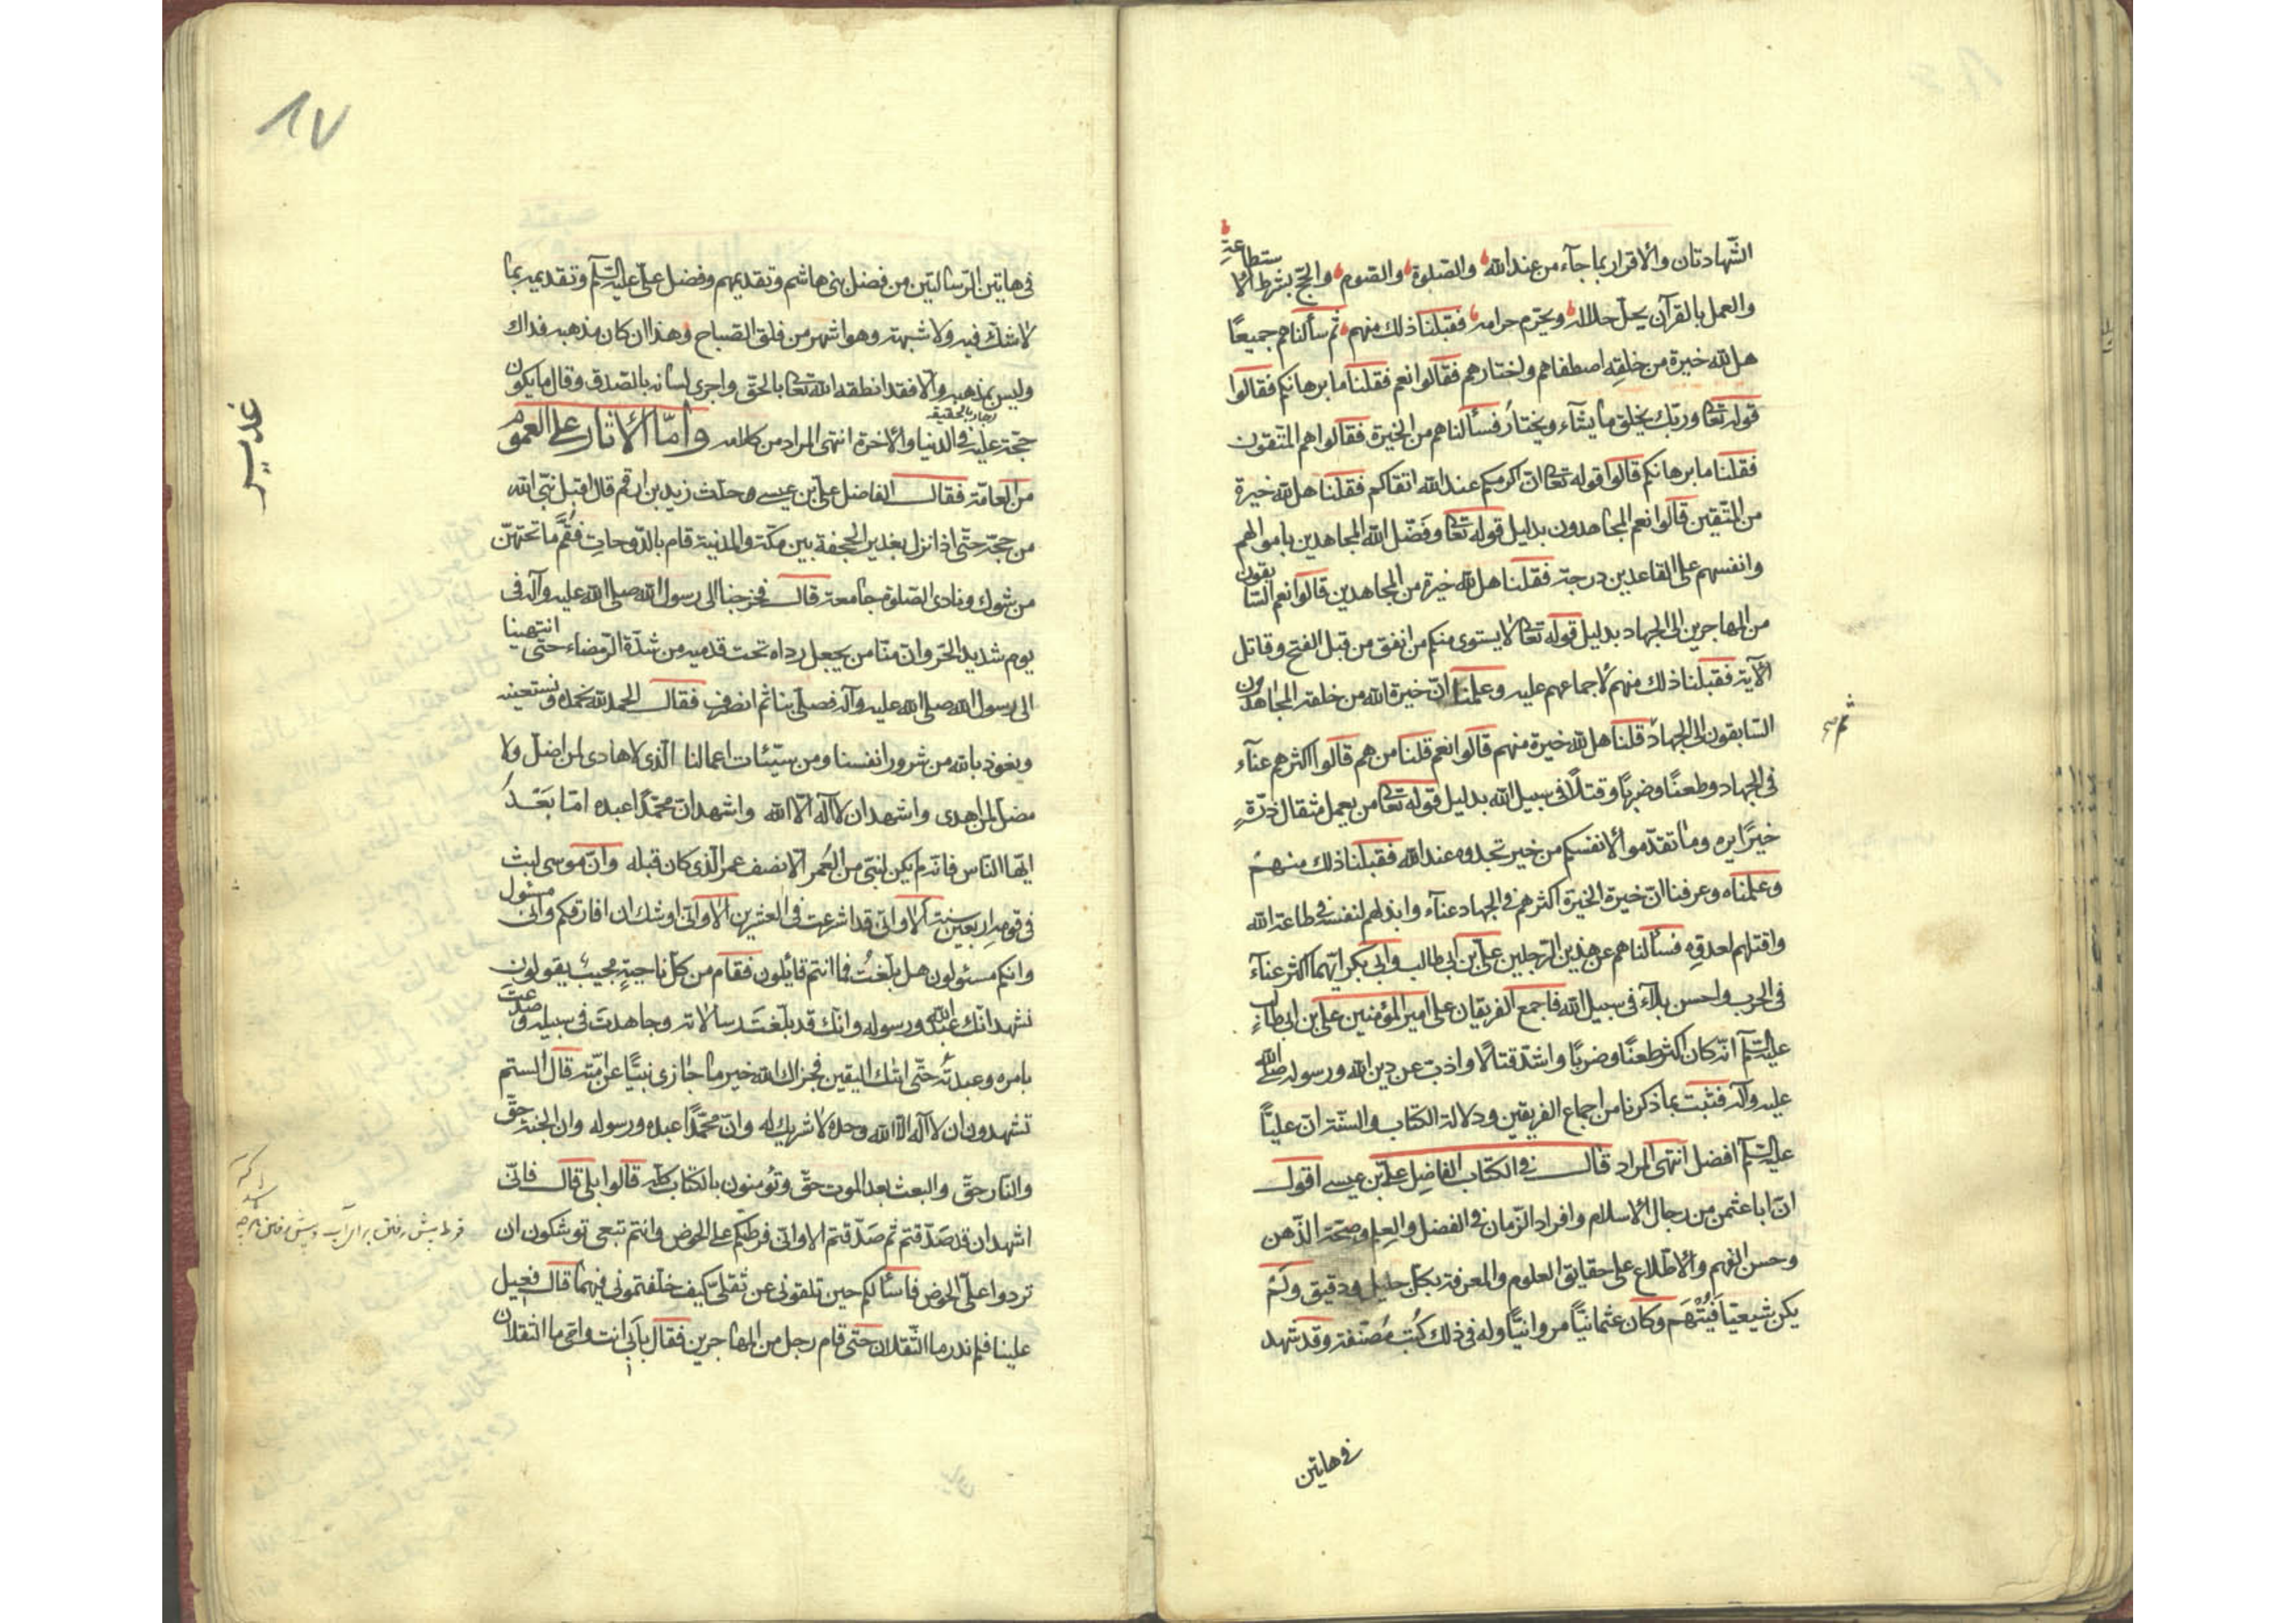 الشّهادتان والاقرار بما جآء من عند الله والصّلوة والصّوم والحجّ بشرط الاستطاعة
والعمل بالقرآن يحلّ حلاله ويحرّم حرامه فقبلنا ذلك منهم ثم سألناهم جميعًا
هل لله خيرة من خلقه اصطفاهم واختارهم فقالوا نعم فقلنا ما برهانكم فقالوا
قوله تعا وربّك يخلق ما يشآء ويختار فسألناهم من الخيرة فقالوا هم المتّقون
فقلنا ما برهانكم قالوا قوله تعا انّ اكرمكم عند الله اتقاكم فقلنا هل لله خيرة
من المتّقين قالوا نعم المجاهدون بدليل قوله تعا وفَضّل الله المجاهدين باموالهم
وانفسهم على القاعدين درجة فقلنا هل لله خيرة من المجاهدين قالوا نعم السّابقون
من المهاجرين الى الجهاد بدليل قوله تعا لا يستوى منكم من انفق من قبل الفتح وقاتل
الآية فقبلنا ذلك منهم لاجماعهم عليه وعلمنا انّ خيرة الله من خلقه المجاهدون
السّابقون الى الجهاد قلنا هل لله خيرة منهم قالوا نعم قلنا من هم قالوا اكثرهم عنآء
ثم
فى الجهاد وطعنًا وضربًا وقتلًا فى سبيل الله بدليل قوله تعا من يعمل مثقال ذرّةٍ
خيرًا يره وما تقدّموا لانفسكم من خير تجدوه عند الله فقبلنا ذلك منهم
وعلمناه وعرفنا انّ خيرة الخيرة اكثرهم فى الجهاد عنآء وابذلهم لنفسه فى طاعة الله
واقتلهم لعدوّه فسألناهم عن هذين الرّجلين علىّ بن ابى طالب وابى بكر ايّهما اكثر عنآء
فى الحرب واحسن بلآء فى سبيل الله فاجمع الفريقان على امير المؤمنين على بن ابى طالب
عليه السّلم انّه كان اكثر طعنًا وضربًا واشدّ قتالًا واذبّ عن دين الله ورسوله صلى الله
عليه وآله فثبت بما ذكرنا من اجماع الفريقين ودلالة الكتاب والسّنّة انّ عليًّا
عليه السّلم افضل انتهى المراد قال فى الكتاب الفاضل علىّ بن عيسى اقول
انّ ابا عثمن من رجال الاسلام وافراد الزّمان فى الفضل والعلم وصحّة الذّهن
وحسن الفهم والاطّلاع على حقايق العلوم والمعرفة بكلّ جليل ودقيق ولَمْ
يكن شيعيّا فَيُتْهَم وكان عثمانيًّا مروانيًّا وله فى ذلك كُتب مُصنّفة وقد شهد
فى هاتين
٨٧
فى هاتين الرّسالتين من فضل بنى هاشم وتقديمهم وفضل علىّ عليه السّلم وتقديمه بما
لا شكّ فيه ولا شبهة وهو اشهر من فلق الصّباح وهذا ان كان مذهبه فذاك
وليس بمذهبه والّا فقد انطقه الله تعا بالحقّ واجرى لسانه بالصّدق وقال ما يكون
حجّة عليه فى الدنيا والاخرة انتهى المراد من كلامه وامّا الاثار على العموم
غدير
من العامّة فقال الفاضل علىّ بن عيسى وحدّث زيد بن ارقم قال اقبل نبىّ الله
من حجّة حتّى اذا نزل بغدير الجحفة بين مكّة والمدينة قام بالدّوحات فقُمّ ما تحتهنّ
من شوك ونادى الصّلوة جامعة قال فخرجنا الى رسول الله صلى الله عليه وآله فى
يوم شديد الحرّ وانّ منّا من يجعل رداه تحت قدميه من شدّة الرّمضاء حتّى انتهينا
الى رسول الله صلى الله عليه وآله فصلّى بنا ثم انصرف فقال الحمد لله نحمده ونستعينه
ونعوذ بالله من شرور انفسنا ومن سيّئات اعمالنا الّذى لا هادى لمن اضلّ ولا
مضلّ لمن هدى واشهد ان لا اله الّا الله واشهد انّ محمّدًا عبده امّا بَعْدُ
ايّها النّاس فانّه لم يكن لنبىّ من العُمر الّا نصف عمر الّذى كان قبله وانّ موسى لبث
فى قومه اربعين سنة الا وانّى قد اشرعت فى العشرين الا وانّى اوشك ان افارقكم وانّى مسئول
وانكم مسئولون هل بلّغتُ فما انتم قائلون فقام من كلّ ناحيةٍ مجيبٌ يقولون
نشهد انّك عبد الله ورسوله وانّك قد بلّغتَ رسالاته وجاهدتَ فى سبيله وصدعتَ
بامره وعبدتَه حتّى اتيك اليقين فجزاك الله خير ما جازى نبيًّا عن امّته قال الستم
تشهدون ان لا اله الّا الله وحده لا شريك له وانّ محمّدًا عبده ورسوله وان الجنّة حقّ
والنّار حقّ والبعث بعد الموت حقّ وتؤمنون بالكتاب كلّه قالوا بلى قال فانّى
اشهد ان قد صدّقتم ثم صَدّقتم الا وانّى فرطكم على الحوض وانتم تبعى توشكون ان
فرط پيش رفتن براى آب
تردوا علىّ الحوض فاسألكم حين تلقونى عن ثقلىّ كيف خلفتمونى فيهما قال فعيل
علينا فلم ندر ما الثّقلان حتّى قام رجل من المهاجرين فقال بأبى انت وامّى ما الثقلان